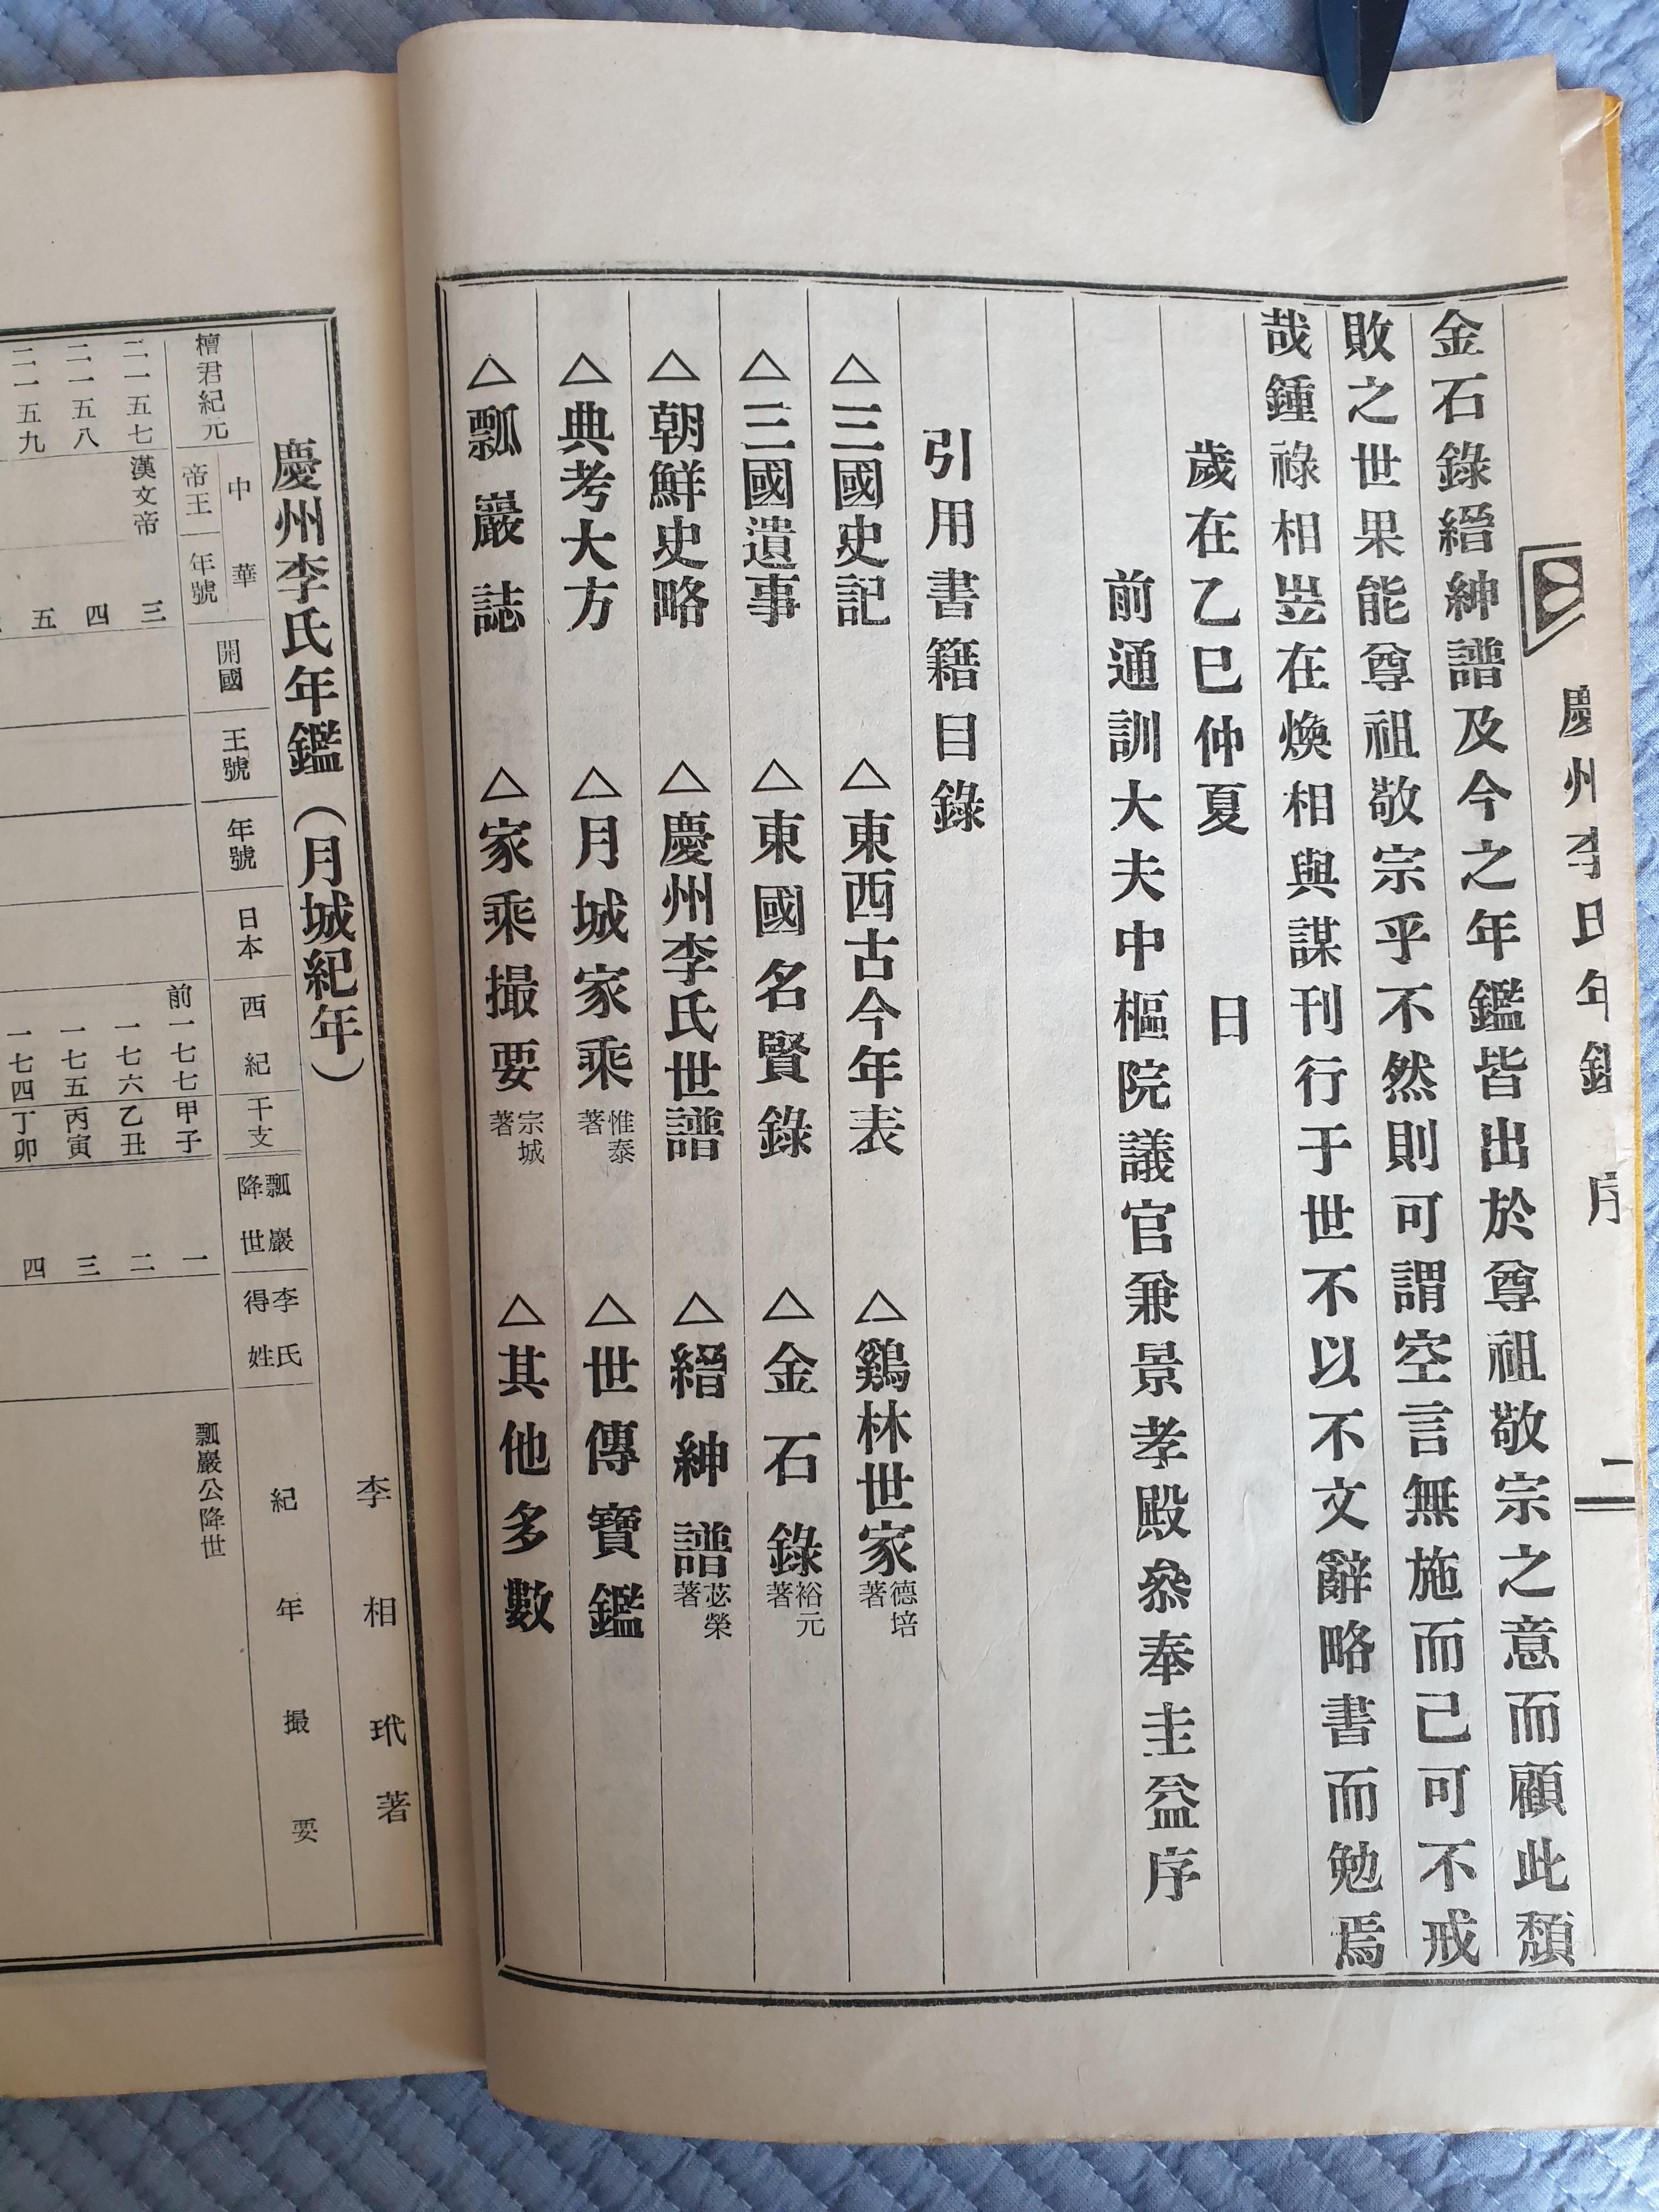 慶州李氏年鑑 序 二
金石錄縉紳譜及今之年鑑皆出於尊祖敬宗之意而顧此頹
敗之世果能尊祖敬宗乎不然則可謂空言無施而已可不戒
哉鍾祿相豈在煥相與謀刊行于世不以不文辭略書而勉焉
歲在乙巳仲夏 日
前通訓大夫中樞院議官兼景孝殿叅奉圭益序
引用書籍目錄
△三國史記 △東西古今年表 △鷄林世家 德培著
△三國遺事 △東國名賢錄 △金石錄 裕元著
△朝鮮史略 △慶州李氏世譜 △縉紳譜 苾榮著
△典考大方 △月城家乘 惟泰著 △世傳寶鑑
△瓢巖誌 △家乘撮要 宗城著 △其他多數
李相玳著
慶州李氏年鑑(月城紀年)
檀君紀元 中華 帝王 年號 開國 王號 年號 日本 西紀 干支 瓢巖降世 李氏得姓 紀年撮要
二一五七 漢文帝 三 前一七七 甲子 一 瓢巖公降世
二一五八 四 一七六 乙丑 二
二一五九 五 一七五 丙寅 三
一七四 丁卯 四